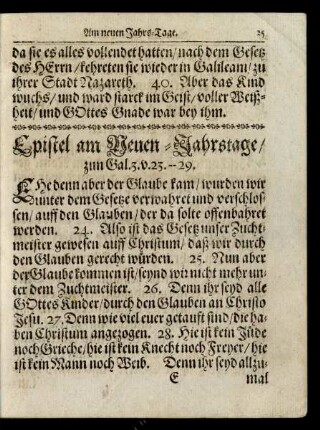 Am neuen Jahrs-Tage. 25
da sie es alles vollendet hatten/ nach dem Gesetz
des HErrn/ kehreten sie wieder in Galileam/ zu
ihrer Stadt Nazareth. 40. Aber das Kind
wuchs/ und ward starck im Geist/ voller Weiß-
heit/ und GOttes Gnade war bey ihm.
Epistel am Neuen-Jahrstage/
zun Gal. 3. v. 23. -- 29.
EHe denn aber der Glaube kam/ wurden wir
unter dem Gesetze verwahret und verschlos-
sen/ auff den Glauben/ der da solte offenbahret
werden. 24. Also ist das Gesetz unser Zucht-
meister gewesen auff Christum/ daß wir durch
den Glauben gerecht würden. 25. Nun aber
der Glaube kommen ist/ seynd wir nicht mehr un-
ter dem Zuchtmeister. 26. Denn ihr seyd alle
GOttes Kinder/ durch den Glauben an Christo
Jesu. 27. Denn wie viel euer getaufft sind/ die ha-
ben Christum angezogen. 28. Hie ist kein Jüde
noch Grieche/ hie ist kein Knecht noch Freyer/ hie
ist kein Mann noch Weib. Denn ihr seyd allzu-
E mal